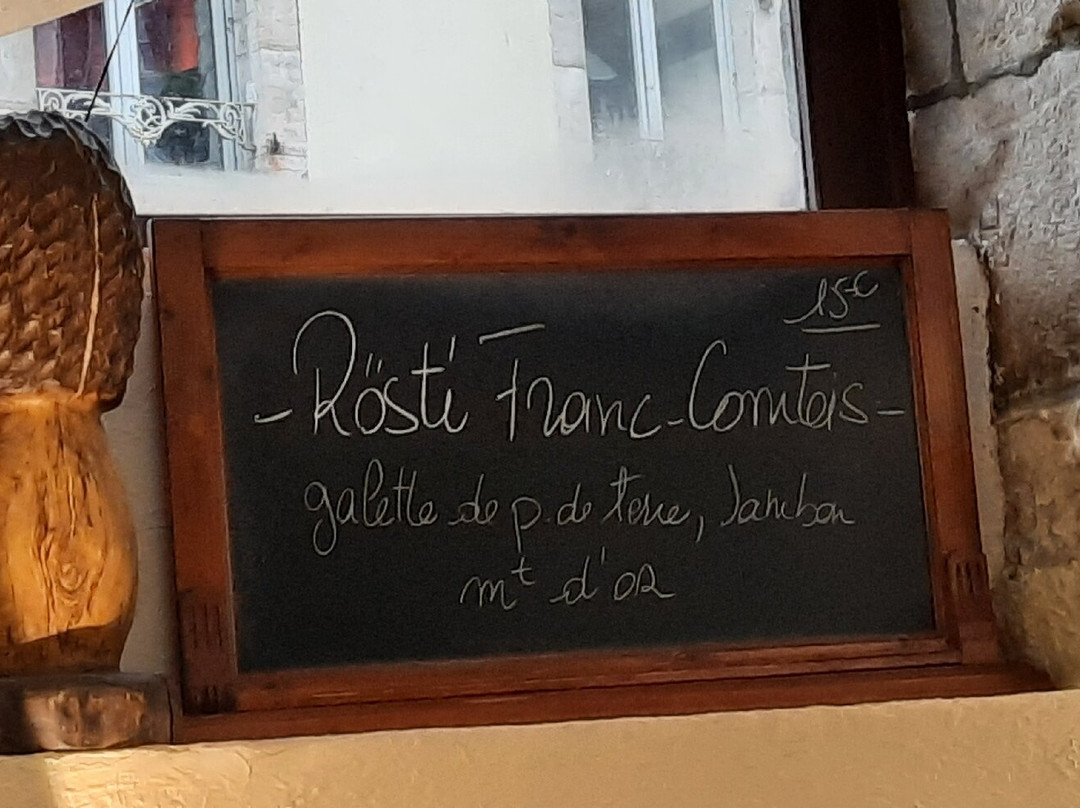 15€
- Rösti Franc-Comtois -
galette de p. de terre, Jambon
mt d'OR